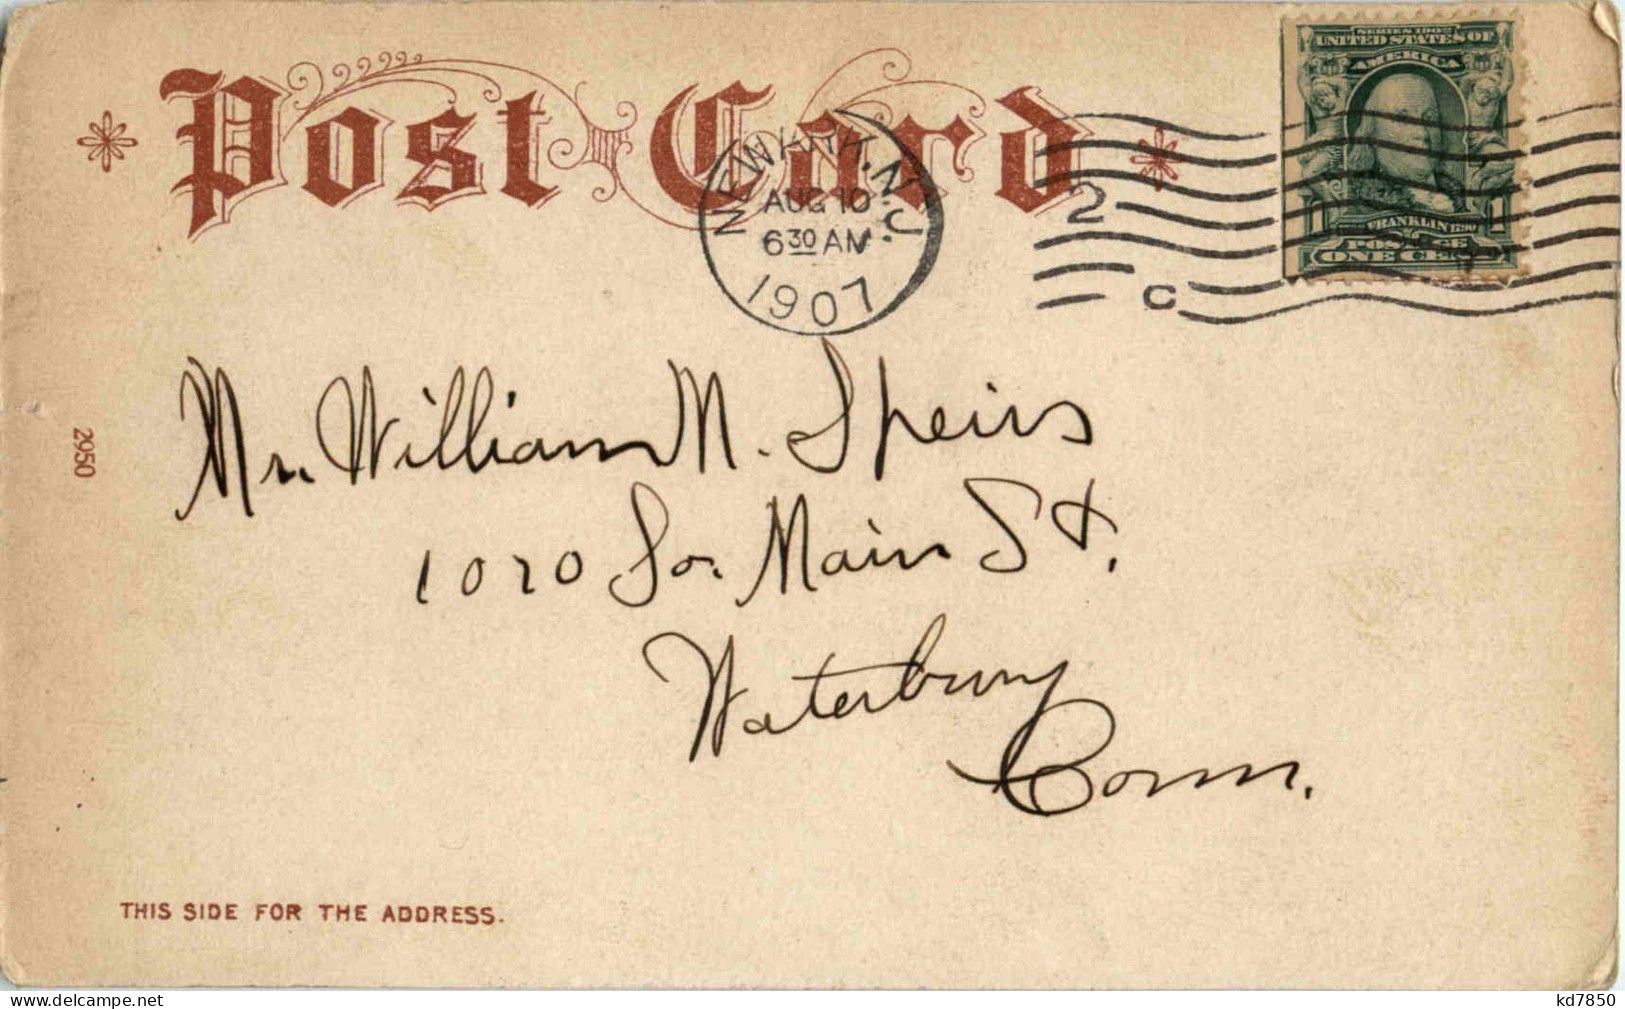 Post Card
NEWARK, N.J.
AUG 10
6 30 AM
1907
2
C
SERIES 1902
UNITED STATES OF
AMERICA
FRANKLIN 1790
1 1
POSTAGE
ONE CENT
Mr. William M. Speirs
1020 So. Main St.
Waterbury
Conn.
2950
THIS SIDE FOR THE ADDRESS.
www.delcampe.net
kd7850